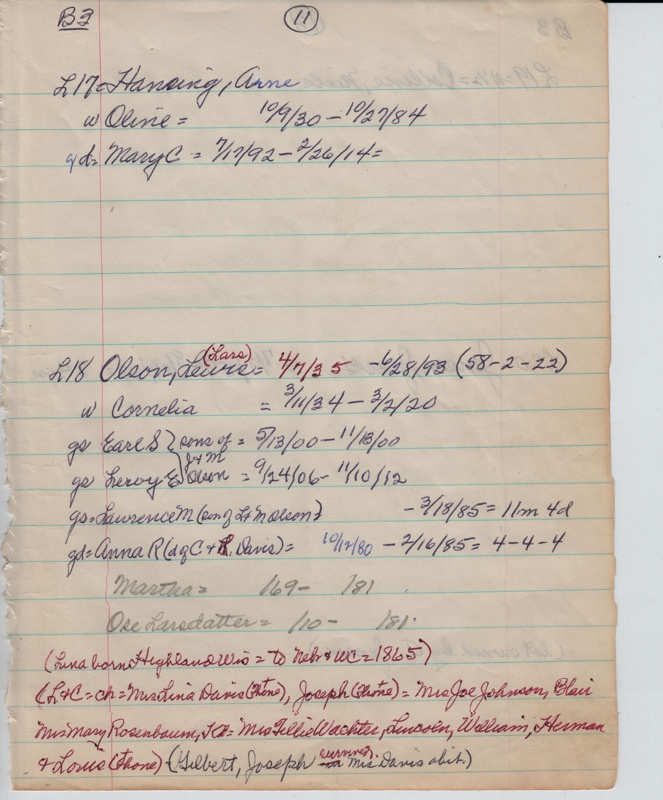 B3
11
L17 = Hansing, Arne
w Oline = 10/9/30 - 10/27/84
gd = Mary C = 7/17/92 - 2/26/14 =
(Lars)
L18 Olson, Lewis = 4/7/35 - 6/28/93 (58-2-22)
w Cornelia = 3/11/34 - 3/2/20
gs Earl S } sons of = 5/13/00 - 11/18/00
J & M
gs Leroy E } Olson = 9/24/06 - 11/10/12
gs = Lawrence M (son of L & M Olson) - 3/18/85 = 11m 4d
gd = Anna R (d of C & R Davis) = 10/12/80 - 2/16/85 = 4-4-4
Martha = /69 - /81
Ose Larsdatter = /10 - /81.
(Lina born Highland Wis = to Nebr & WC = 1865)
(L & C = ch = Mrs Lina Davis (Thone), Joseph (Thone) = Mrs Joe Johnson, Blair
Mrs Mary Rosenbaum, = Mrs Tillie Wachter, Lincoln, William, Herman
& Louis (Thone) (Gilbert, Joseph survived Mrs. Davis obit.)